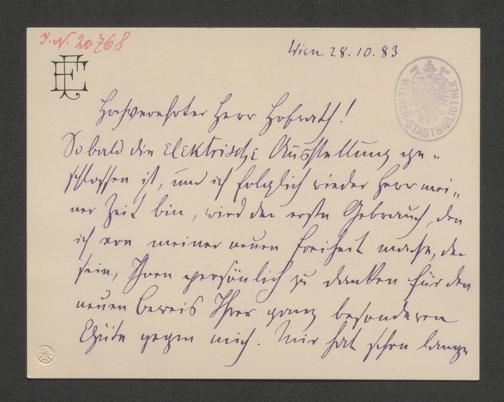 I.N. 20768
Wien 28.10.83
EF
WIENER STADTBIBLIOTHEK
Hochverehrter Herr Hofrath!
Sobald die Elektrische Ausstellung ge-
schlossen ist, und ich folglich wieder Herr mei-
ner Zeit bin, wird der erste Gebrauch, den
ich von meiner neuen Freiheit mache, der
sein, Ihnen persönlich zu danken für den
neuen Beweis Ihrer ganz besonderen
Güte gegen mich. Mir hat schon lange